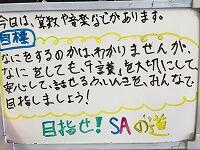 今日は、算数や音楽などがあります。
目標
なにをするのかはわかりませんが、
なにをしても、「言葉」を大切にして
安心して、話せるふんいきを、みんなで
目指しましょう!
目指せ!SAの道